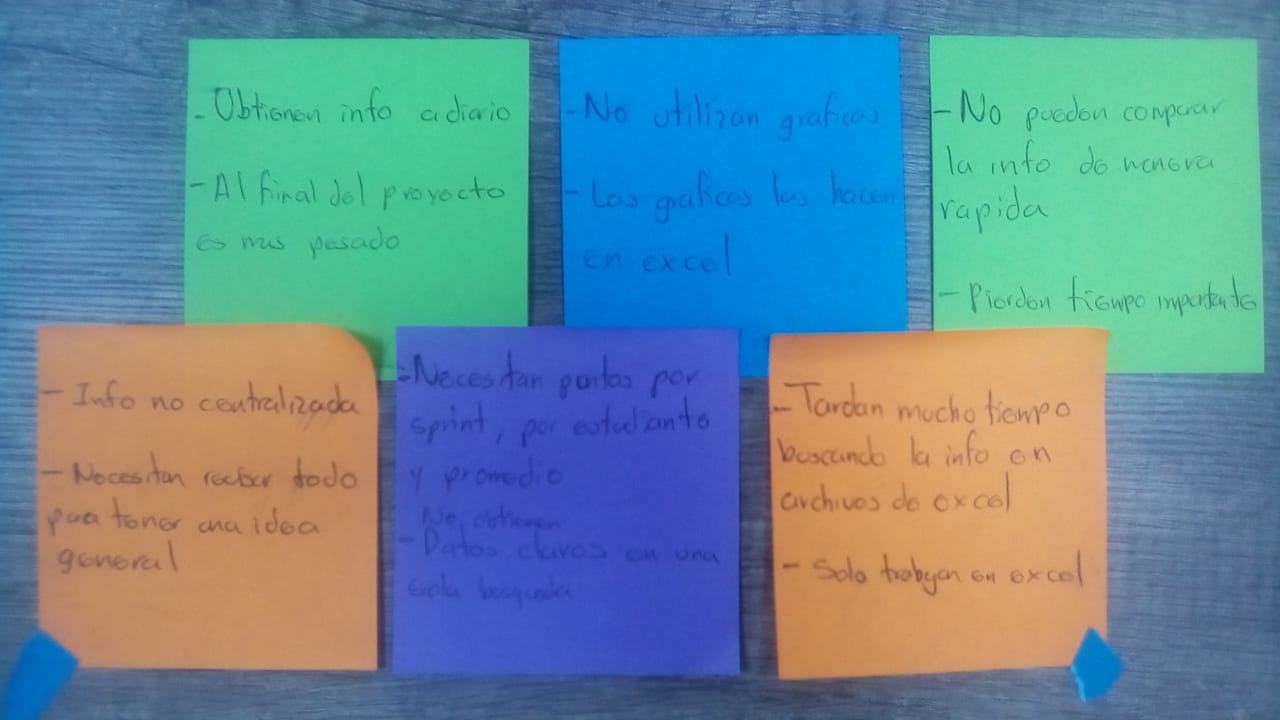 - Obtienen info a diario
- Al final del proyecto
es mas pesado
- No utilizan graficas
- Las graficas las hacen
en excel
- No pueden comparar
la info de manera
rapida
- Pierden tiempo importante
- Info no centralizada
- Necesitan revisar todo
para tener una idea
general
- Necesitan puntos por
sprint, por estudiante
y promedio
No obtienen
- Datos claves en una
sola busqueda
- Tardan mucho tiempo
buscando la info en
archivos de excel
- Solo trabajan en excel